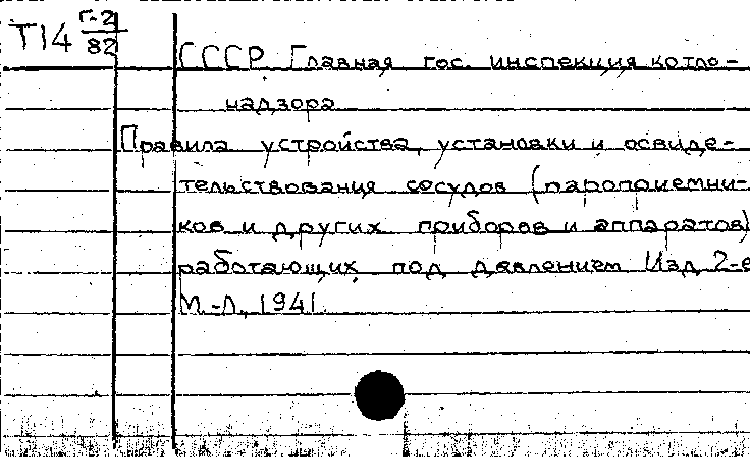 Т14 Г-2/82
СССР. Главная гос. инспекция котло-
надзора
Правила устройства, установки и освиде-
тельствования сосудов (пароприемни-
ков и других приборов и аппаратов)
работающих под давлением Изд. 2-е
М.-Л., 1941.